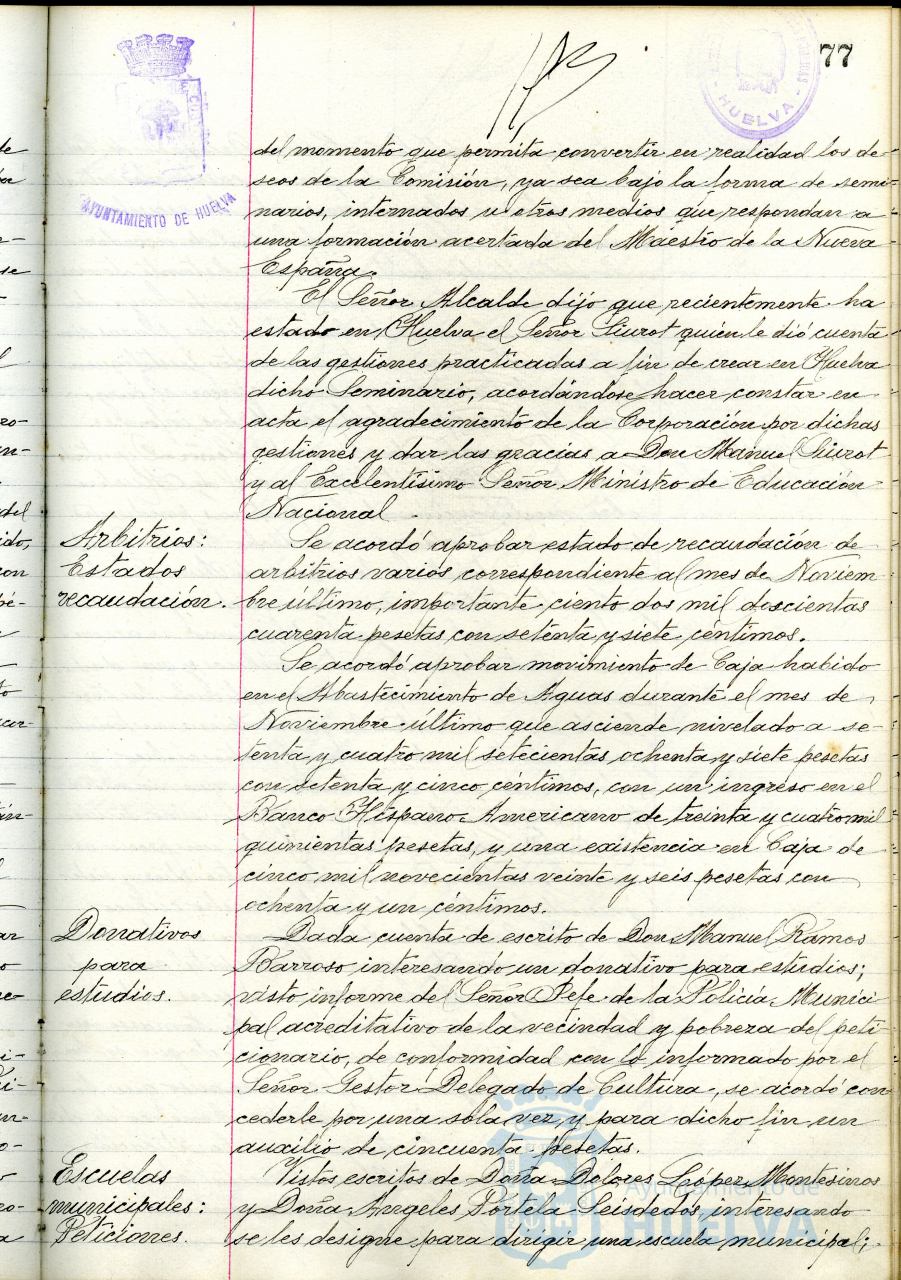 77
AYUNTAMIENTO DE HUELVA
HUELVA
del momento que permita convertir en realidad los de-
seos de la Comisión, ya sea bajo la forma de semi
narios, internados u otros medios que respondan a
una formación acertada del Maestro de la Nueva
España.
El Señor Alcalde dijo que recientemente ha
estado en Huelva el Señor Siurot quien le dió cuenta
de las gestiones practicadas a fin de crear en Huelva
dicho Seminario, acordándose hacer constar en
acta el agradecimiento de la Corporación por dichas
gestiones y dar las gracias a Don Manuel Siurot
y al Excelentísimo Señor Ministro de Educación
Nacional.
Arbitrios:
Estados
recaudación.
Se acordó aprobar estado de recaudación de
arbitrios varios correspondiente al mes de Noviem
bre último, importante ciento dos mil doscientas
cuarenta pesetas con setenta y siete céntimos.
Se acordó aprobar movimiento de Caja habido
en el Abastecimiento de Aguas durante el mes de
Noviembre último que asciende nivelado a se-
tenta y cuatro mil setecientas ochenta y siete pesetas
con setenta y cinco céntimos, con un ingreso en el
Banco Hispano-Americano de treinta y cuatro mil
quinientas pesetas, y una existencia en Caja de
cinco mil novecientas veinte y seis pesetas con
ochenta y un céntimos.
Donativos
para
estudios.
Dada cuenta de escrito de Don Manuel Ramos
Barroso interesando un donativo para estudios;
visto informe del Señor Jefe de la Policía Munici
pal acreditativo de la vecindad y pobreza del peti
cionario, de conformidad con lo informado por el
Señor Gestor Delegado de Cultura, se acordó con
cederle por una sola vez y para dicho fin un
auxilio de cincuenta pesetas.
Escuelas
municipales:
Peticiones.
Vistos escritos de Doña Dolores López Montesinos
y Doña Angeles Portela Seisdedos, interesando
se les designe para dirigir una escuela municipal;
Ayuntamiento de
HUELVA